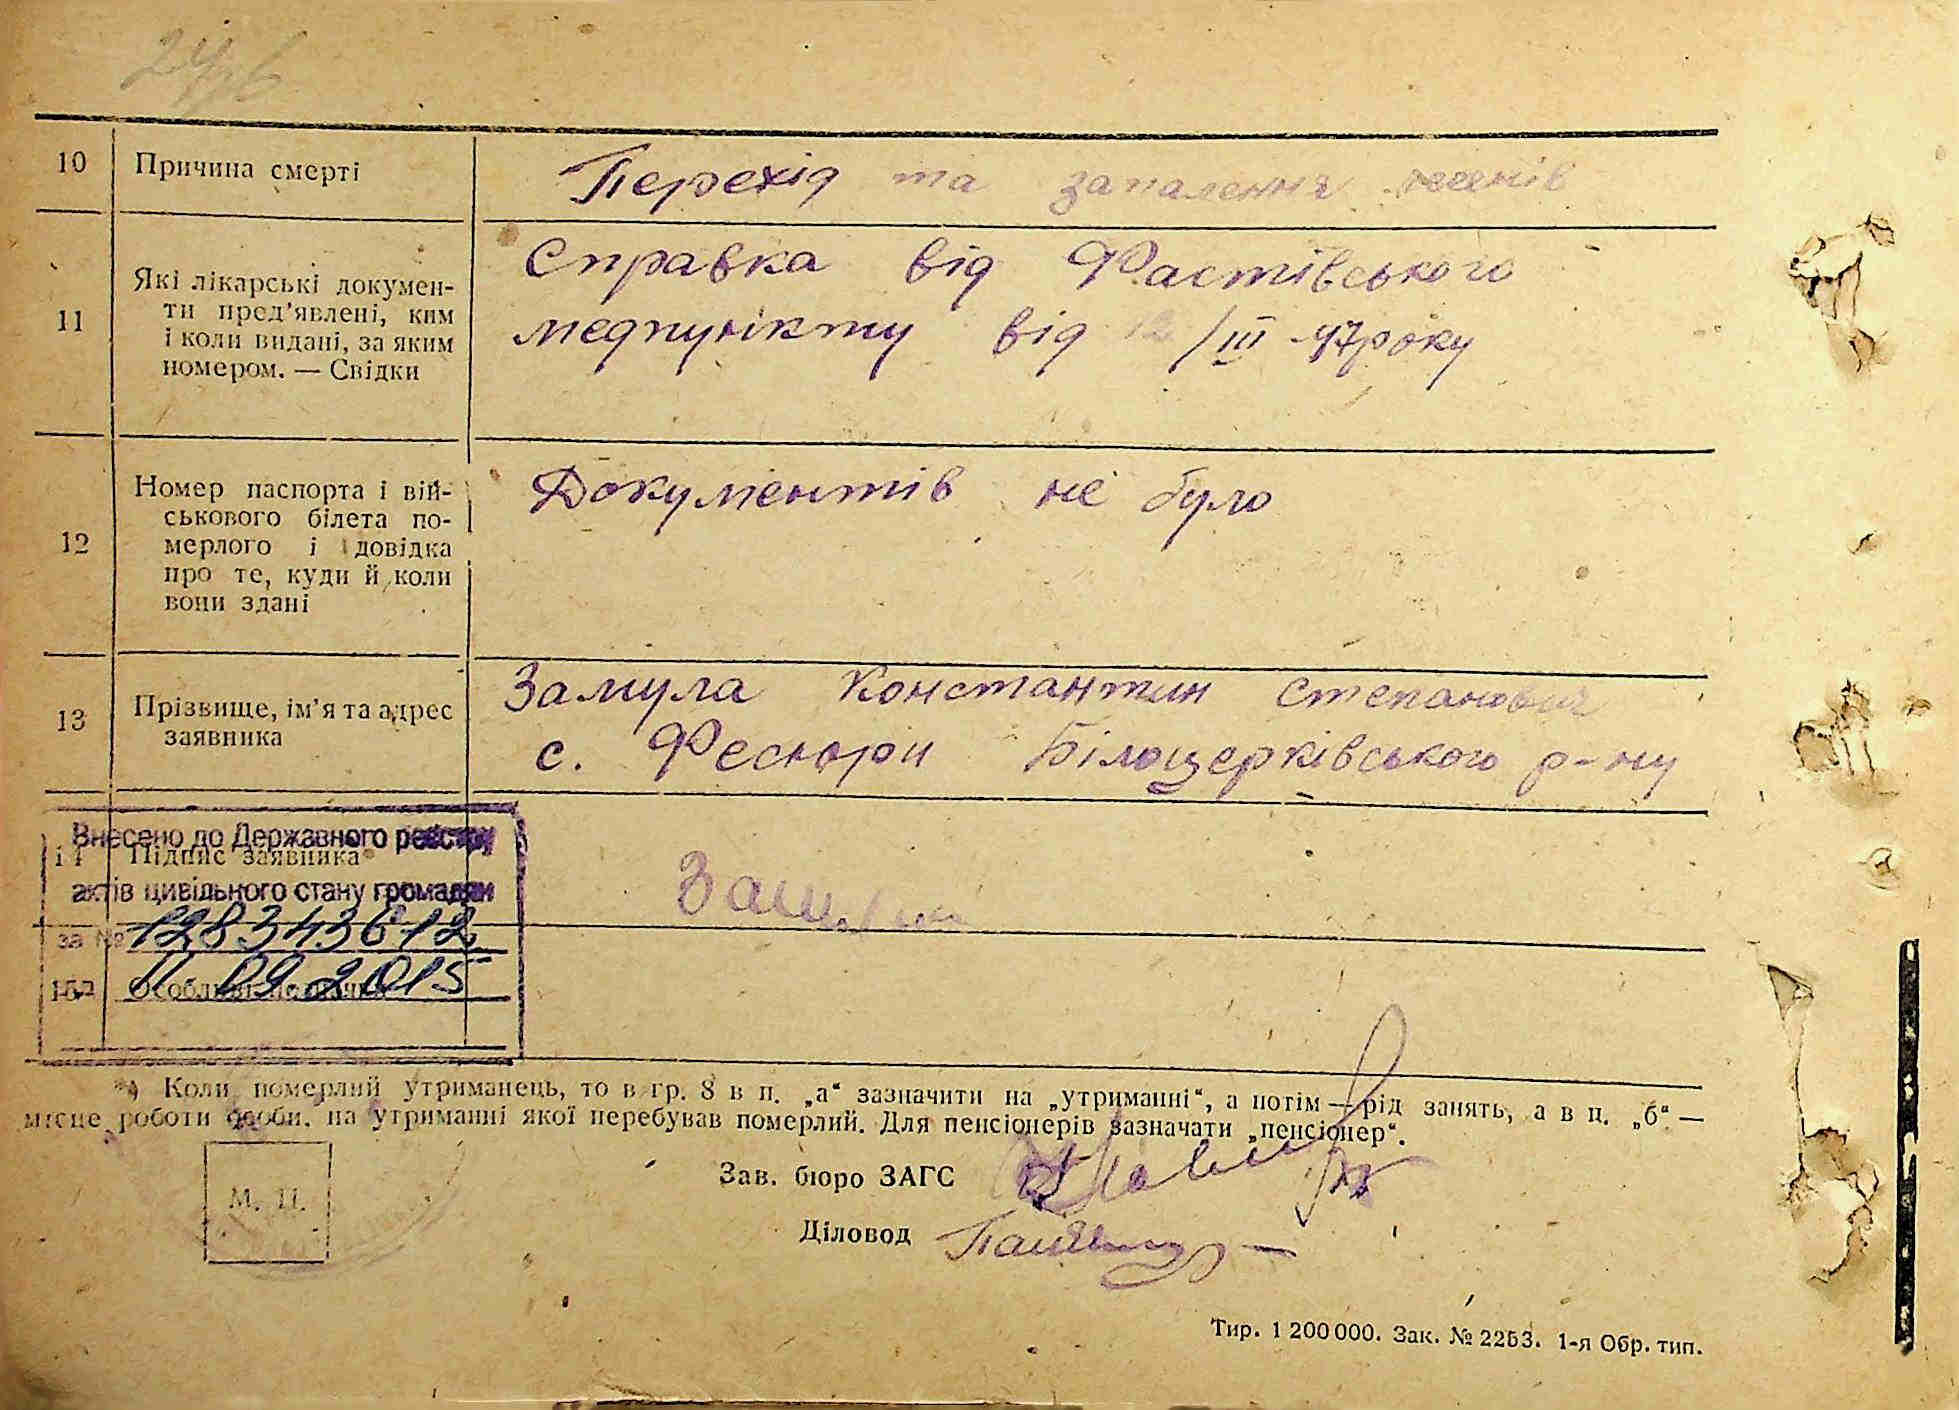 10 Причина смерті Перехід та запалення легенів
11 Які лікарські докумен-
ти пред'явлені, ким
і коли видані, за яким
номером. — Свідки
Справка від Фастівського
медпункту від 12/III 47 року
12 Номер паспорта і вій-
ськового білета по-
мерлого і довідка
про те, куди й коли
вони здані
Документів не було
13 Прізвище, ім'я та адрес
заявника
Замула Константин Степанович
с. Фесюри Білоцерківського р-ну
Підпис заявника
Внесено до Державного реєстру
актів цивільного стану громадян
за № 128343612
11.09.2015
*) Коли померлий утриманець, то в гр. 8 в п. „а“ зазначити на „утриманні“, а потім — рід занять, а в п. „б“ —
місце роботи особи, на утриманні якої перебував померлий. Для пенсіонерів зазначати „пенсіонер“.
М. П.
Зав. бюро ЗАГС
Діловод
Тир. 1 200 000. Зак. № 2253. 1-я Обр. тип.